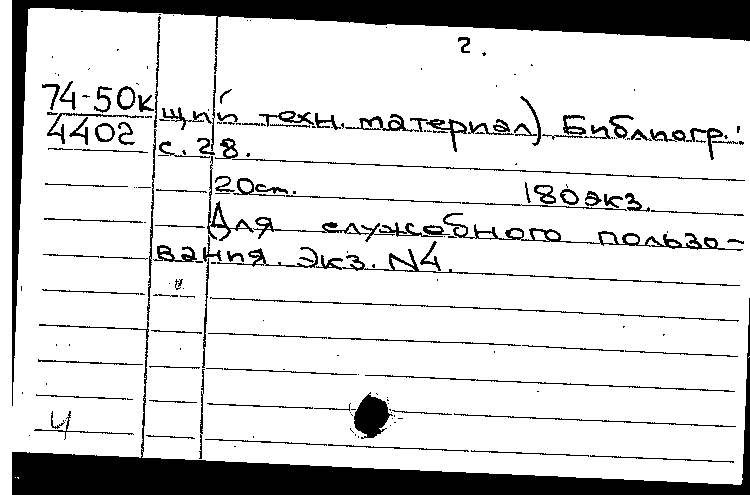 2.
74-50к щий техн. материал). Библиогр.:
4402 с. 28.
20см. 180экз.
Для служебного пользо-
вания. Экз. N4.
Ч